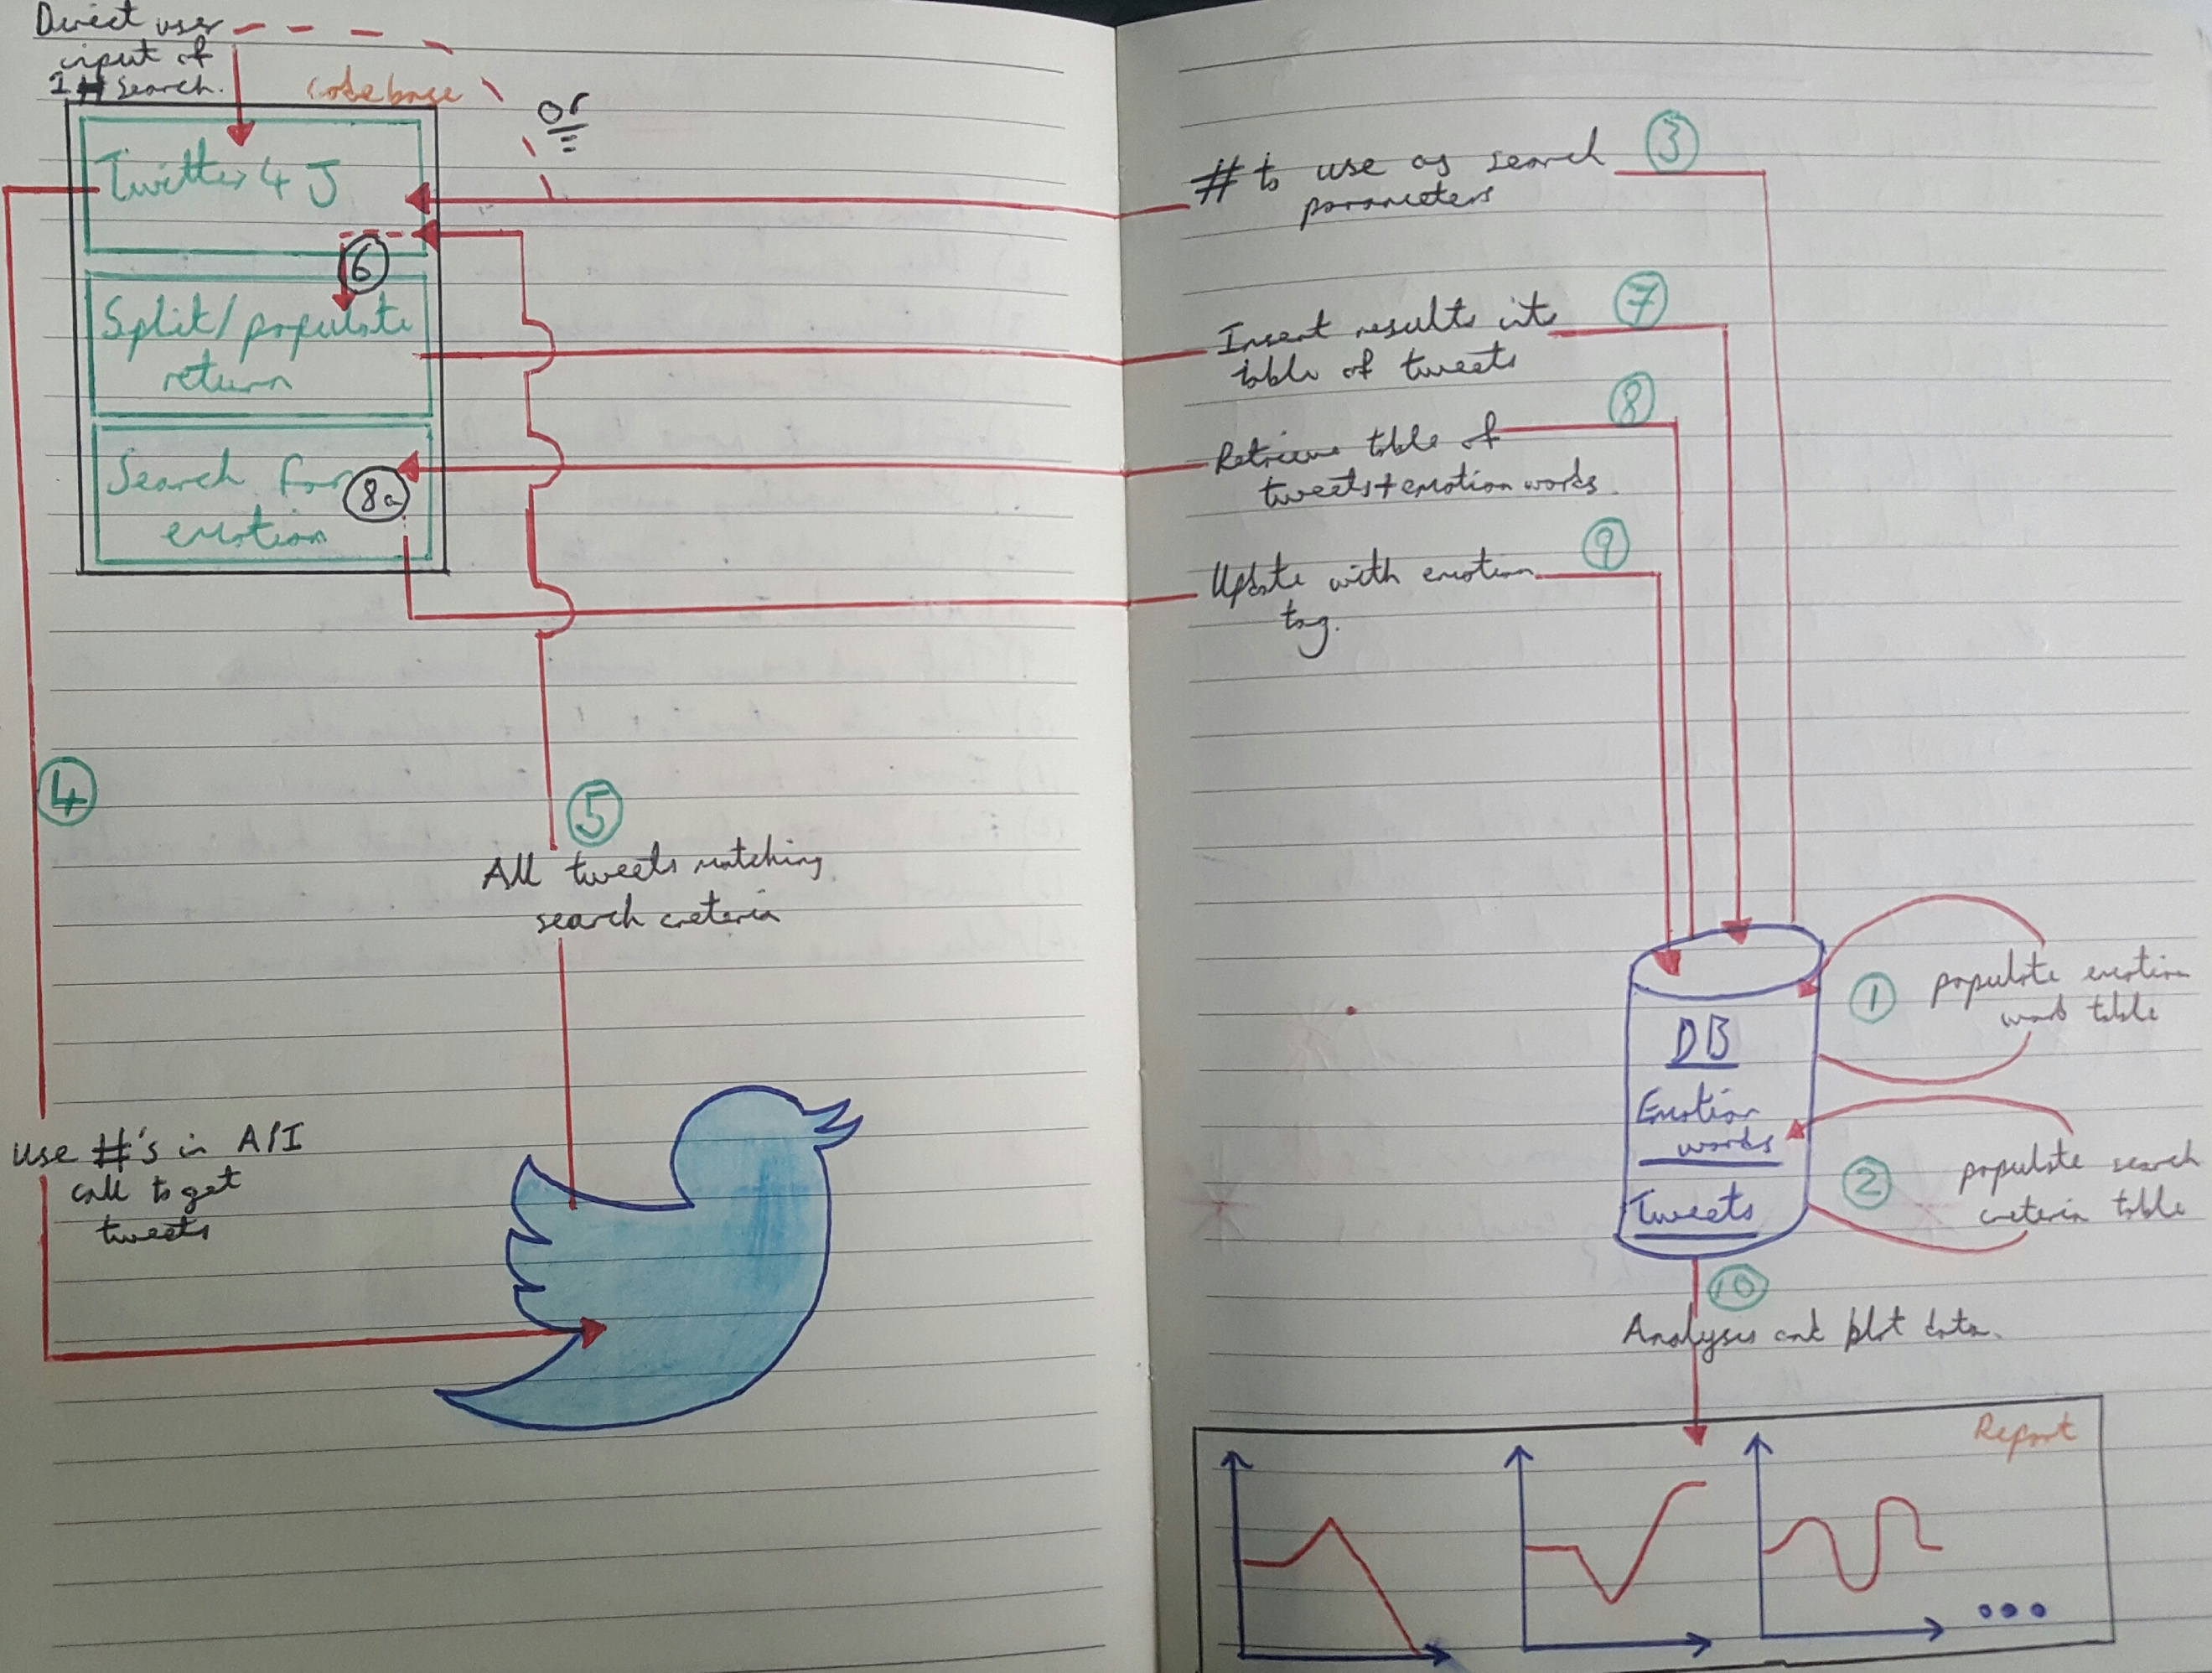 Direct user
input of
1 # search.
codebase
or
Twitter 4 J
6
Split/populate
return
Search for
emotion
8a
4
5
All tweets matching
search creteria
use #'s in API
call to get
tweets
# to use as search
parameters
3
Insert results into
table of tweets
7
Retrieve table of
tweets + emotion words.
8
Update with emotion
tag.
9
DB
Emotion
words
Tweets
1
populate emotion
word table
2
populate search
creteria table
10
Analyses and plot data.
Report